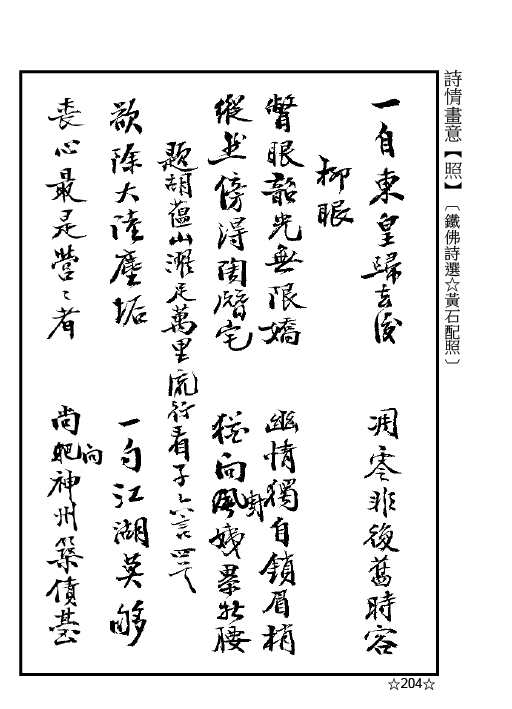 詩情畫意【照】〔鐵佛詩選☆黃石配照〕
一自東皇歸去後 凋零非復舊時容
柳眼
瞥眼韶光無限嬌 幽情獨自鎖眉梢
縱然傍得陶臍宅 猶向風前嬝舞腰
題胡蘊山濯足萬里流行看子六言四言
欲除大陸塵垢 一勺江湖莫够
喪心最是營營者 尚向神州築債臺
☆204☆